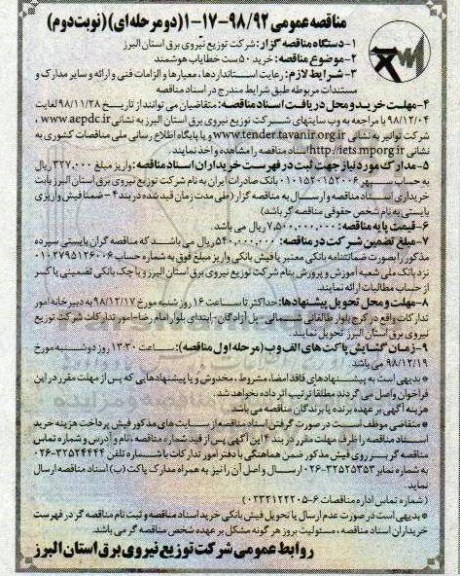 مناقصه عمومی ۹۸/۹۲-۱۷-۱(دو مرحله ای) (نوبت دوم)
۱-دستگاه مناقصه گزار: شرکت توزیع نیروی برق استان البرز
۲-موضوع مناقصه: خرید ۵۰ ست خطایاب هوشمند
۳-شرایط لازم: رعایت استانداردها، معیارها و الزامات فنی و ارائه و سایر مدارک و
مستندات مربوطه طبق شرایط مندرج در اسناد مناقصه
۴-مهلت خرید و محل دریافت اسناد مناقصه: متقاضیان می توانند از تاریخ ۹۸/۱۱/۲۸ لغایت
۹۸/۱۲/۰۴ با مراجعه به وب سایتهای شرکت توزیع نیروی برق استان البرز به نشانی www.aepdc.ir ،
شرکت توانیر به نشانی www.tender.tavanir.org.ir و یا پایگاه اطلاع رسانی ملی مناقصات کشوری به
نشانی http://iets.mporg.ir اسناد مناقصه را مشاهده و اخذ نمایند.
۵-مدارک مورد نیاز جهت ثبت در فهرست خریداران اسناد مناقصه: واریز مبلغ ۳۲۷،۰۰۰ ریال
به حساب سپهر ۰۱۰۱۵۲۰۱۵۲۰۰۶ بانک صادرات ایران به نام شرکت توزیع نیروی برق استان البرز بابت
خریداری اسناد مناقصه و ارسال به مناقصه گزار (طی مدت زمان قید شده در بند ۴-ضمنا فیش واریزی
بایستی به نام شخص حقوقی مناقصه گر باشد)
۶-قیمت پایه مناقصه: ۷،۵۰۰،۰۰۰،۰۰۰ ریال می باشد.
۷-مبلغ تضمین شرکت در مناقصه: ۵۴۰،۰۰۰،۰۰۰ ریال می باشد که مناقصه گران بایستی سپرده
مذکور را بصورت ضمانتنامه بانکی معتبر یا فیش بانکی واریز مبلغ فوق به شماره حساب ۰۱۰۲۷۹۵۱۲۶۰۰۶
نزد بانک ملی شعبه آموزش و پرورش بنام شرکت توزیع نیروی برق استان البرز و یا چک بانکی تضمینی یا کسر
از حساب مطالبات ارائه نمایند.
۸-مهلت و محل تحویل پیشنهادها: حداکثر تا ساعت ۱۶ روز شنبه مورخ ۹۸/۱۲/۱۷ به دبیرخانه امور
تدارکات واقع در کرج بلوار طالقانی شمالی-پل آزادگان-ابتدای بلوار امام رضا-امور تدارکات شرکت توزیع
نیروی برق استان البرز تحویل نمایند.
۹-زمان گشایش پاکت های الف و ب (مرحله اول مناقصه): ساعت ۱۳:۳۰ روز دوشنبه مورخ
۹۸/۱۲/۱۹ می باشد
* بدیهی است به پیشنهادهای فاقد امضا، مشروط، مخدوش و یا پیشنهادهایی که پس از مهلت مقرر در این
فراخوان واصل می گردند مطلقا ترتیب اثر داده نخواهد شد.
هزینه آگهی بر عهده برنده یا برندگان مناقصه می باشد
* متقاضی موظف است در صورت گرفتن اسناد مناقصه از سایت های مذکور فیش پرداخت هزینه خرید
اسناد مناقصه را ظرف مهلت مقرر در بند ۴ این آگهی پس از قید شماره مناقصه، نام و آدرس و شماره تماس
مناقصه گر بر روی فیش مذکور ضمن هماهنگی با دفتر امور تدارکات با شماره تلفن ۳۲۵۲۴۴۴۴-۰۲۶
به شماره نمابر ۳۲۵۲۵۳۵۳-۰۲۶ ارسال و اصل آن را نیز به همراه مدارک پاکت (ب) اسناد مناقصه ارسال
نماید
(شماره تماس اداره مناقصات ۶-۰۲۳۲۱۲۲۲۰۵)
* بدیهی است در صورت عدم ارسال یا تحویل فیش بانکی خرید اسناد مناقصه و ثبت نام مناقصه گر در فهرست
خریداران اسناد مناقصه، مسئولیت بروز هر گونه مشکل بر عهده شخص مناقصه گر می باشد.
روابط عمومی شرکت توزیع نیروی برق استان البرز